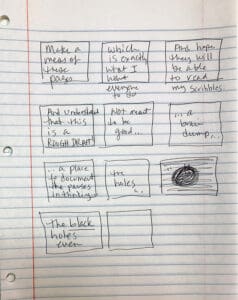 Make a
mess of
these
pages
which
is exactly
what I
want
everyone
to do
And hope
they will
be able
to read
my scribbles.
And understand
that this
is a
ROUGH DRAFT
Not meant
to be
good...
... a
brain
dump...
... a place
to document
the pauses
in thinking
the
holes
...
The black
holes
even